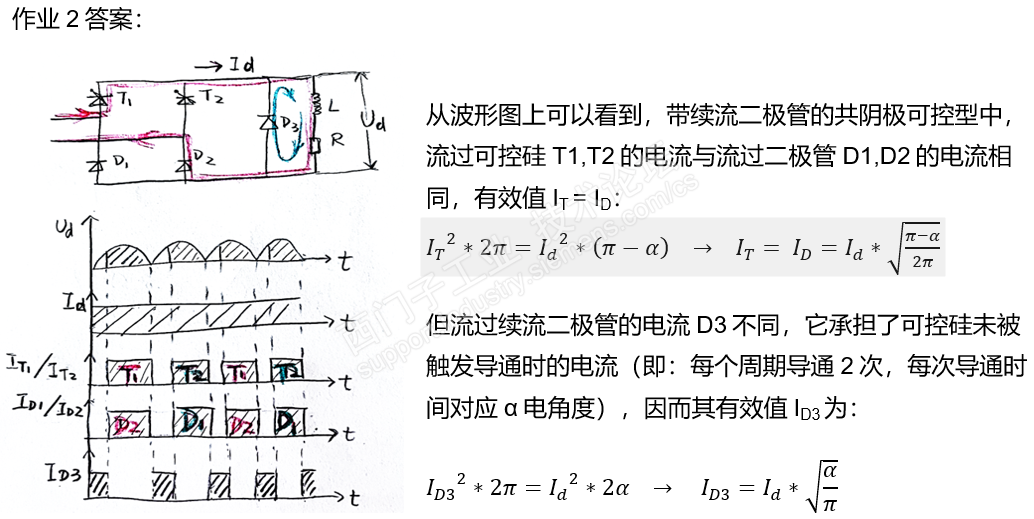 作业 2 答案：
→ Id
T1
T2
D3
L
R
Ud
D1
D2
Ud
t
Id
t
IT1/IT2
T1 T2 T1 T2
t
ID1/ID2
D2 D1 D2 D1
t
ID3
t
从波形图上可以看到，带续流二极管的共阴极可控型中，
流过可控硅 T1,T2 的电流与流过二极管 D1,D2 的电流相
同，有效值 I_T = I_D：
I_T² * 2π = I_d² * (π − α) → I_T = I_D = I_d * √((π−α)/(2π))
但流过续流二极管的电流 D3 不同，它承担了可控硅未被
触发导通时的电流（即：每个周期导通 2 次，每次导通时
间对应 α 电角度），因而其有效值 I_D3 为：
I_D3² * 2π = I_d² * 2α → I_D3 = I_d * √(α/π)
西门子工业技术论坛
support.industry.siemens.com/cs